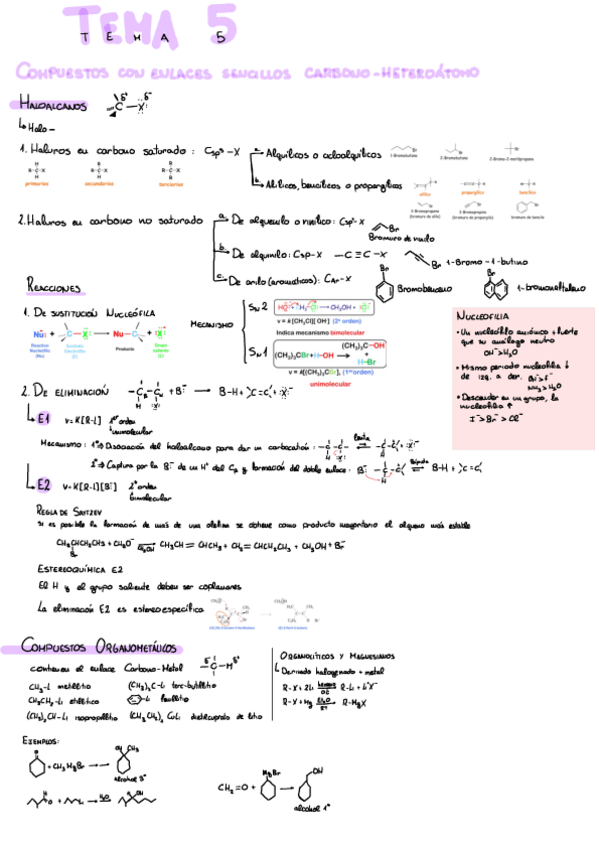 TEMA 5
T E M A 5
COMPUESTOS CON ENLACES SENCILLOS CARBONO-HETEROÁTOMO
HALOALCANOS
C-X:
↳ Halo-
1. Haluros en carbono saturado: Csp³-X
a. Alquílicos o cicloalquílicos
1-Bromobutano
2-Bromobutano
2-Bromo-2-metilpropano
primarios
secundarios
terciarios
b. Alílicos, bencílicos o propargílicos
alílico
propargílico
bencílico
3-Bromopropeno
(bromuro de alilo)
3-Bromopropino
(bromuro de propargilo)
bromuro de bencilo
2. Haluros en carbono no saturado
a. De alquenilo o vinílico: Csp²-X
Br
Bromuro de vinilo
b. De alquinilo: Csp-X -C≡C-X
Br 1-Bromo-1-butino
c. De arilo (aromáticos): CAr-X
Br
Bromobenceno
Br
1-bromonaftaleno
REACCIONES
1. DE SUSTITUCIÓN NUCLEÓFILA
Nu:⁻ + C-X: → Nu-C + :X:⁻
Reactivo
Nucleófilo
(Nu)
Sustrato
Electrófilo
(E)
Producto
Grupo
saliente
MECANISMO
SN2
HO⁻ + H₃C-Cl → CH₃OH + Cl⁻
v = k [CH₃Cl][OH⁻] (2º orden)
Indica mecanismo bimolecular
SN1
(CH₃)₃CBr + H-OH → (CH₃)₃C-OH
+
H-Br
v = k[(CH₃)₃CBr], (1er orden)
unimolecular
NUCLEOFILIA
• Un nucleófilo aniónico + fuerte
que su análogo neutro
OH⁻>H₂O
• Mismo periodo nucleofilia ↓
de izq. a der.
NH₃>H₂O
• Descender en un grupo, la
nucleofilia ↑
I⁻>Br⁻>Cl⁻
2. DE ELIMINACIÓN -C-C- + B:⁻ → B-H + C=C + :X:⁻
H :X:
↳ E1 v=K[R-L] 1er orden
unimolecular
Mecanismo: 1º→ Disociación del haloalcano para dar un carbocatión:
lenta
2º→ Captura por la B:⁻ de un H⁺ del Cβ y formación del doble enlace:
Rápida
B-H + C=C
↳ E2 v=K[R-L][B:⁻] 2º orden
bimolecular
REGLA DE SAYTZEV
Si es posible la formación de más de una olefina se obtiene como producto mayoritario el alqueno más estable
CH₃CHCH₂CH₃ + CH₃O⁻ → CH₃CH=CHCH₃ + CH₂=CHCH₂CH₃ + CH₃OH + Br⁻
Br
CH₃OH
ESTEREOQUÍMICA E2
El H y el grupo saliente deben ser coplanares
La eliminación E2 es estereoespecífica
COMPUESTOS ORGANOMETÁLICOS
contienen el enlace Carbono-Metal
-C-M
CH₃-Li metillitio
(CH₃)₃C-Li terc-butillitio
CH₃CH₂-Li etillitio
-Li fenillitio
(CH₃)₂CH-Li isopropillitio
(CH₃CH₂)₂CuLi dietilcuprato de litio
ORGANOLÍTICOS Y MAGNESIANOS
↳ Derivado halogenado + metal
R-X + 2Li → R-Li + Li⁺X⁻
R-X + Mg → R-MgX
EJEMPLOS:
O
+ CH₃MgBr → OH CH₃
alcohol 3º
O + Li → H₂O OH
CH₂=O + MgBr → OH
alcohol 1º